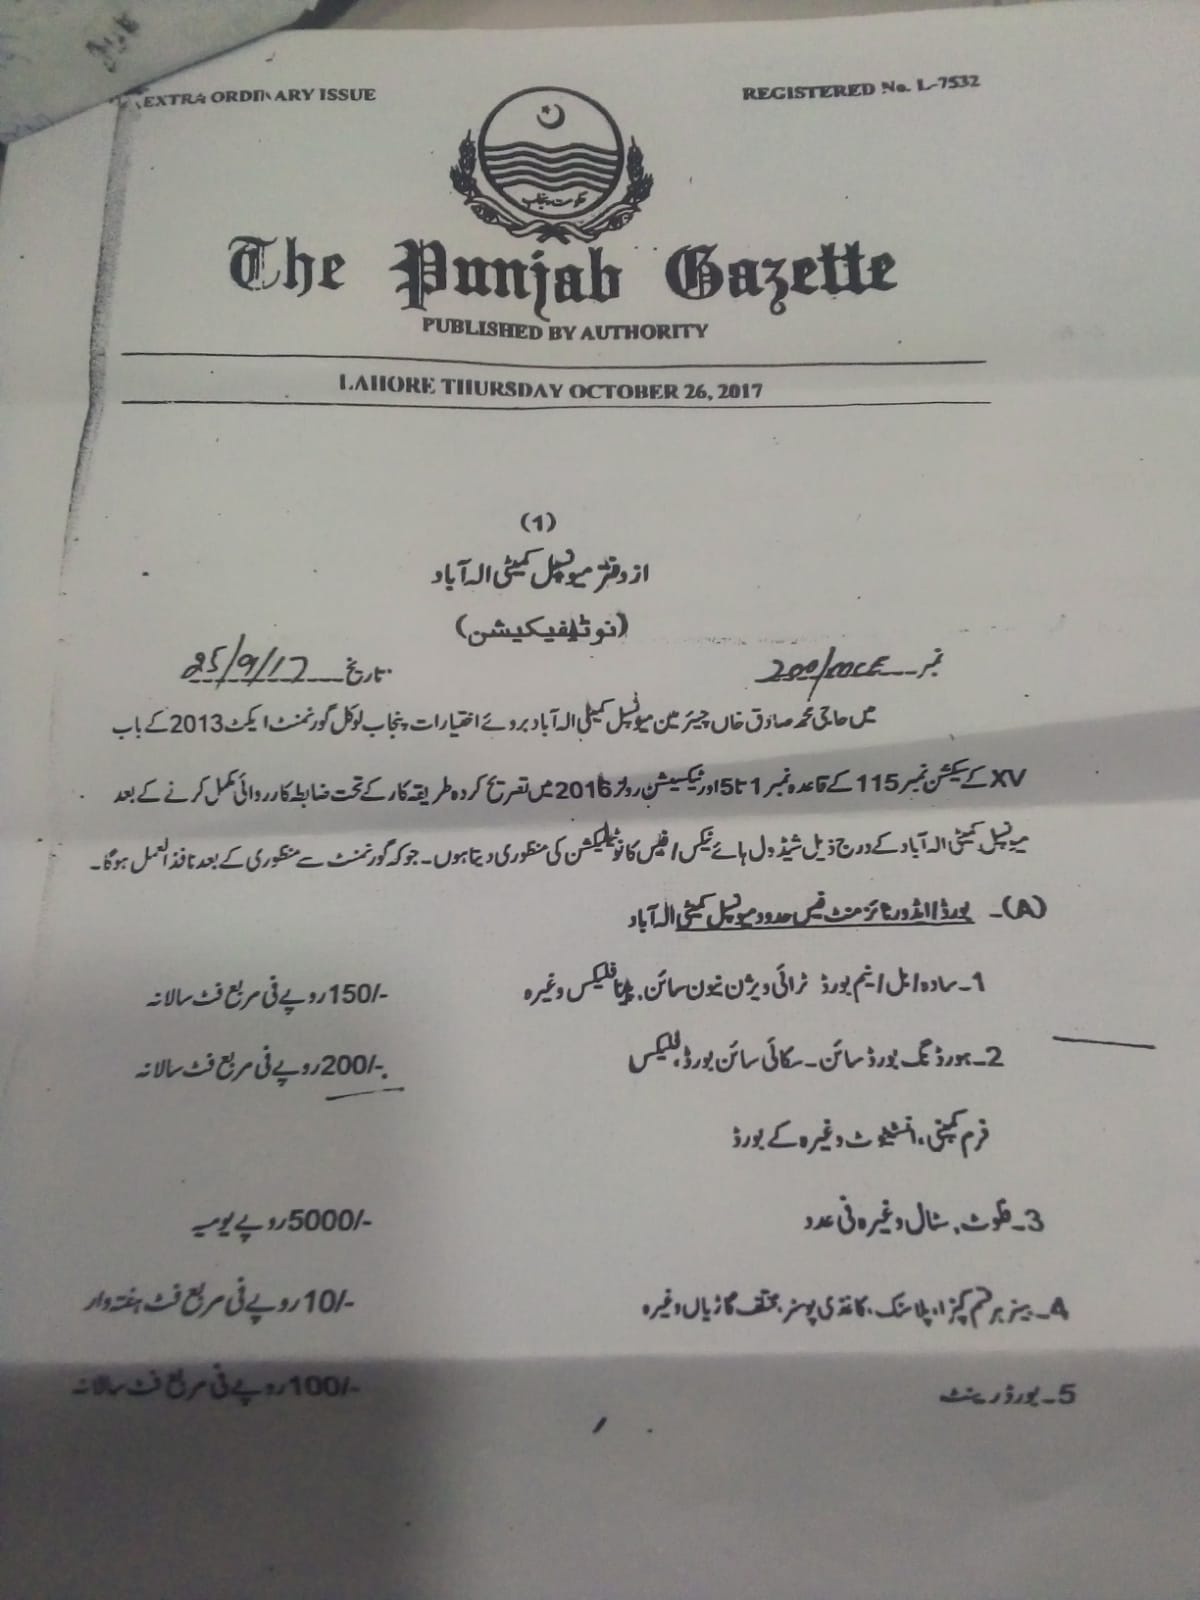 EXTRA ORDINARY ISSUE
REGISTERED No. L-7532
حکومت پنجاب
The Punjab Gazette
PUBLISHED BY AUTHORITY
LAHORE THURSDAY OCTOBER 26, 2017
(1)
از دفتر میونسپل کمیٹی الہ آباد
(نوٹیفیکیشن)
نمبر 200/MCE تاریخ 25/9/17
میں حاجی محمد صادق خاں چیئرمین میونسپل کمیٹی الہ آباد بروئے اختیارات پنجاب لوکل گورنمنٹ ایکٹ 2013 کے باب
XV کے سیکشن نمبر 115 کے قاعدہ نمبر 1 تا 5 اور ٹیکسیشن رولز 2016 میں تصریح کردہ طریقہ کار کے تحت ضابطہ کارروائی مکمل کرنے کے بعد
میونسپل کمیٹی الہ آباد کے درج ذیل شیڈول ہائے ٹیکس / فیس کا نوٹیفکیشن کی منظوری دیتا ہوں۔ جو کہ گورنمنٹ سے منظوری کے بعد نافذ العمل ہوگا۔
(A)۔ بورڈ/ایڈورٹائزمنٹ فیس حدود میونسپل کمیٹی الہ آباد
1۔ سادہ/بل/نیم بورڈ ٹرائی ویژن نیون سائن، پینا فلیکس وغیرہ 150/- روپے فی مربع فٹ سالانہ
2۔ ہورڈنگ بورڈ سائن۔ سکائی سائن بورڈ، فلیکس 200/- روپے فی مربع فٹ سالانہ
فرم کمپنی، انسٹیٹیوٹ وغیرہ کے بورڈ
3۔ فلوٹ، سٹال وغیرہ فی عدد 5000/- روپے یومیہ
4۔ بینر ہر قسم کپڑا، پلاسٹک، کاغذی پوسٹر، مختلف گاڑیاں وغیرہ 10/- روپے فی مربع فٹ ہفتہ وار
5۔ بورڈ رینٹ 100/- روپے فی مربع فٹ سالانہ